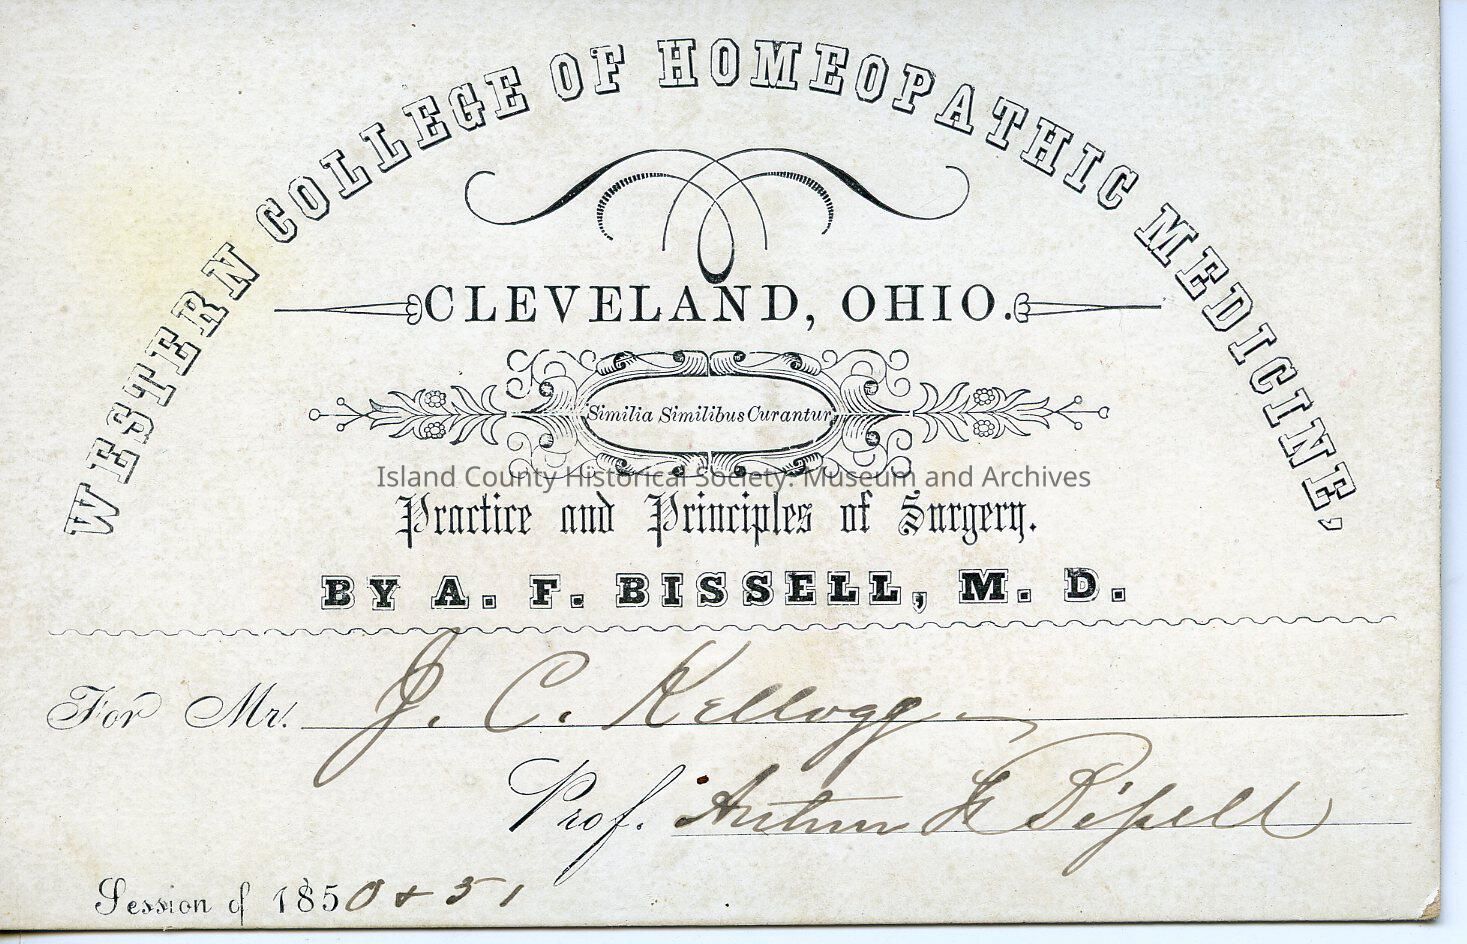 WESTERN COLLEGE OF HOMEOPATHIC MEDICINE,
CLEVELAND, OHIO.
Similia Similibus Curantur
Island County Historical Society: Museum and Archives
Practice and Principles of Surgery.
BY A. F. BISSELL, M. D.
For Mr. J. C. Kellogg
Prof. Arthur F Bissell
Session of 1850 & 51